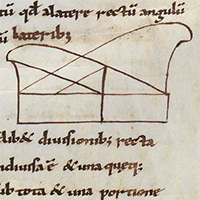 tū qđ alatere rectū angulū
ū lateribꝫ
lib& diuisionibꝫ recta
ndiuisa ē & una queqꝫ
ub tota & una portione